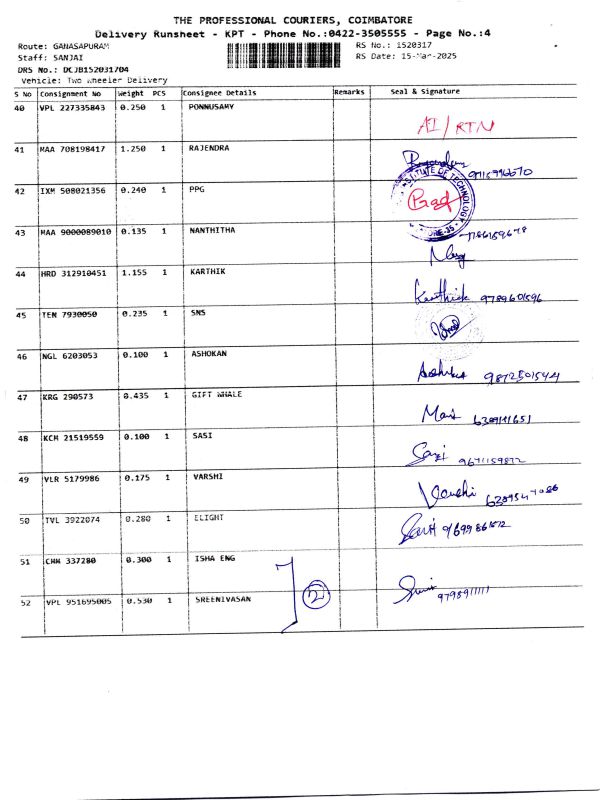 THE PROFESSIONAL COURIERS, COIMBATORE
Delivery Runsheet - KPT - Phone No.:0422-3505555 - Page No.:4
Route: GANASAPURAM
RS No.: 1520317
Staff: SANJAI
RS Date: 15-Mar-2025
DRS No.: DCJB152031704
Vehicle: Two Wheeler Delivery
S No Consignment No Weight PCS Consignee Details Remarks Seal & Signature
40 VPL 227335843 0.250 1 PONNUSAMY
AI/RTN
41 MAA 708198417 1.250 1 RAJENDRA
42 IXM 508021356 0.240 1 PPG
INSTITUTE OF TECHNOLOGY
43 MAA 9000089010 0.135 1 NANTHITHA
44 HRD 312910451 1.155 1 KARTHIK
Karthick 9789601596
45 TEN 7930050 0.235 1 SNS
46 NGL 6203053 0.100 1 ASHOKAN
47 KRG 290573 0.435 1 GIFT WHALE
Mani
48 KCM 21519559 0.100 1 SASI
49 VLR 5179986 0.175 1 VARSHI
50 TVL 3922074 0.280 1 ELIGHT
51 CHM 337280 0.300 1 ISHA ENG
52 VPL 951695005 0.530 1 SREENIVASAN
2